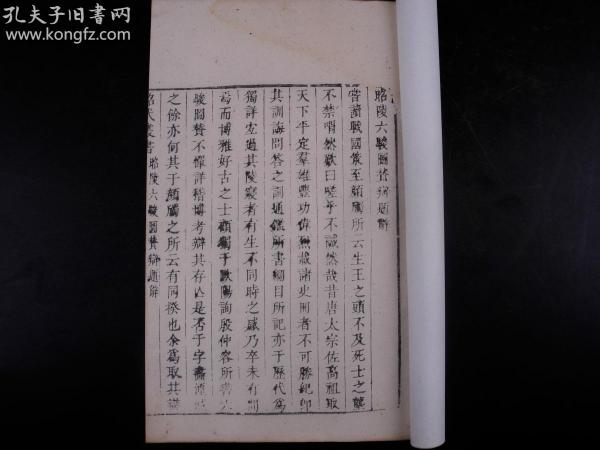 孔夫子旧书网
www.kongfz.com
昭陵六駿圖贊辯題辭
嘗讀戰國策至顏斶所云生王之頭不及死士之壟
不禁喟然歎曰嗟乎不誠然哉昔唐太宗佐高祖取
天下平定羣雄豐功偉烈載諸史冊者不可勝紀卽
其訓誨問答之詞通鑑所書綱目所記亦于歷代爲
獨詳左過其陵寢者有生不同時之感乃卒未有聞
焉而博雅好古之士顧獨于歐陽詢殷仲容所書六
駿圖贊不憚詳稽博考辯其存亡是否于字畫
之餘亦何其于顏斶之所云有同揆也余爲取其
昭代叢書 昭陵六駿圖贊辯題辭